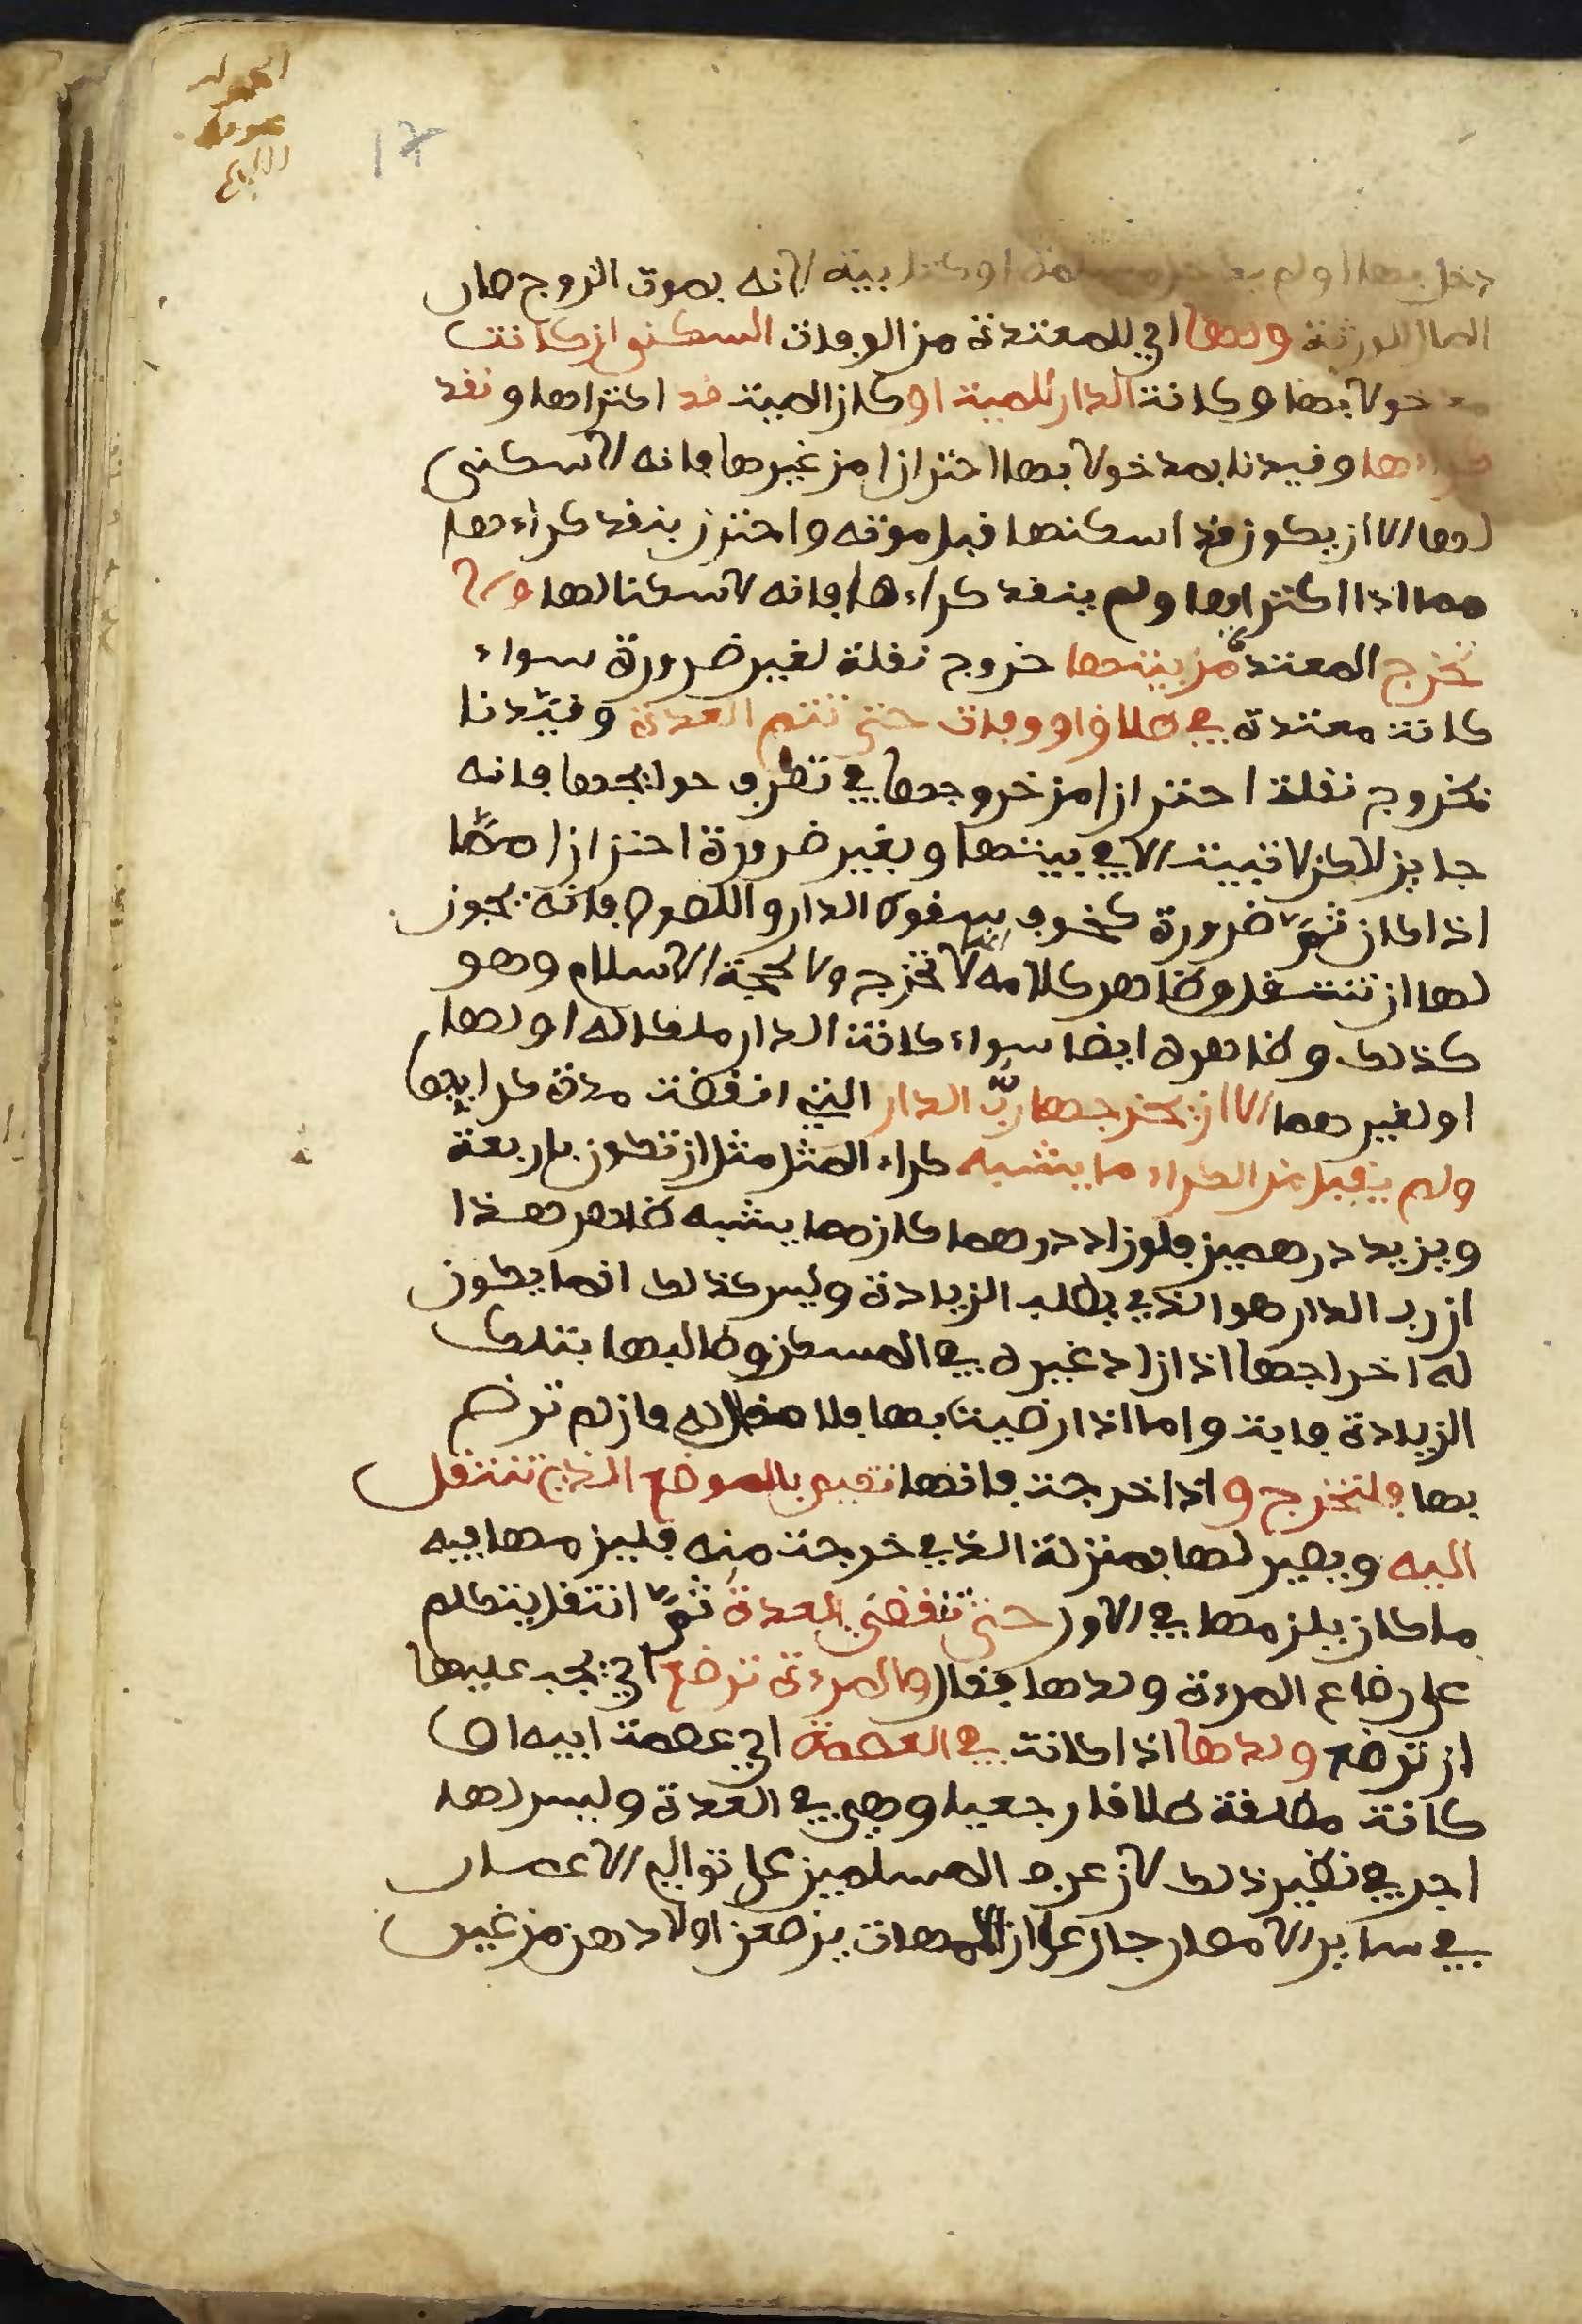 دخل بها او لم يدخل مسلمة او كتابية لانه بموت الزوج صار
المال للورثة ولها اي للمعتدة من الوفات السكنى ان كانت
مدخولا بها وكانت الدار للميت او كان الميت قد اكتراها ونقد
كراءها وقيدنا بمدخولا بها احترازا من غيرها فانه لا سكنى
لها الا ان يكون قد اسكنها قبل موته واحترز بنقد كراءها
مما اذا اكتراها ولم ينقد كراءها فانه لا سكنا لها ولا
تخرج المعتدة من بيتها خروج نقلة لغير ضرورة سواء
كانت معتدة في طلاق او وفات حتى تتم العدة وقيّدنا
بخروج نقلة احترازا من خروجها في تصرف حوايجها فانه
جايز لاكن لا تبيت الا في بيتها وبغير ضرورة احترازا ممّا
اذا كان ثمّ ضرورة كخوف سقوط الدار واللصوص فانه يجوز
لها ان تنتقل وظاهر كلامه انها لا تخرج ولا لحجة الاسلام وهو
كذلك وظاهره ايضا سواء كانت الدار ملكا له او لها
او لغيرهما الا ان يخرجها ربّ الدار التي انقضت مدة كرايها
ولم يقبل من الكراء ما يشبه كراء المثل مثل ان تكون باربعة
ويزيد درهمين فلو زاد درهما كان مما يشبه ظاهر هذا
ان رب الدار هو الذي يطلب الزيادة وليس كذلك انما يكون
له اخراجها اذا زاد غيره في المسكن وطالبها بتلك
الزيادة فابت واما اذا رضيت بها فلا مقال له فان لم ترض
بها فلتخرج و اذا خرجت فانها تقيم بالموضع الذي تنتقل
اليه ويصير لها بمنزلة الذي خرجت منه فليزمها فيه
ما كان يلزمها في الاول حتى تنقضي العدة ثمّ انتقل يتكلم
على رضاع المرءة ولدها فقال والمرءة ترضع اي يجب عليها
ان ترضع ولدها اذا كانت في العصمة اي عصمة ابيه او
كانت مطلقة طلاقا رجعيا وهي في العدة وليس لها
اجر في نظير ذلك لان عرف المسلمين على توالي الاعصار
في ساير الامصار جار على ان الامهات يرضعن اولادهن من غير